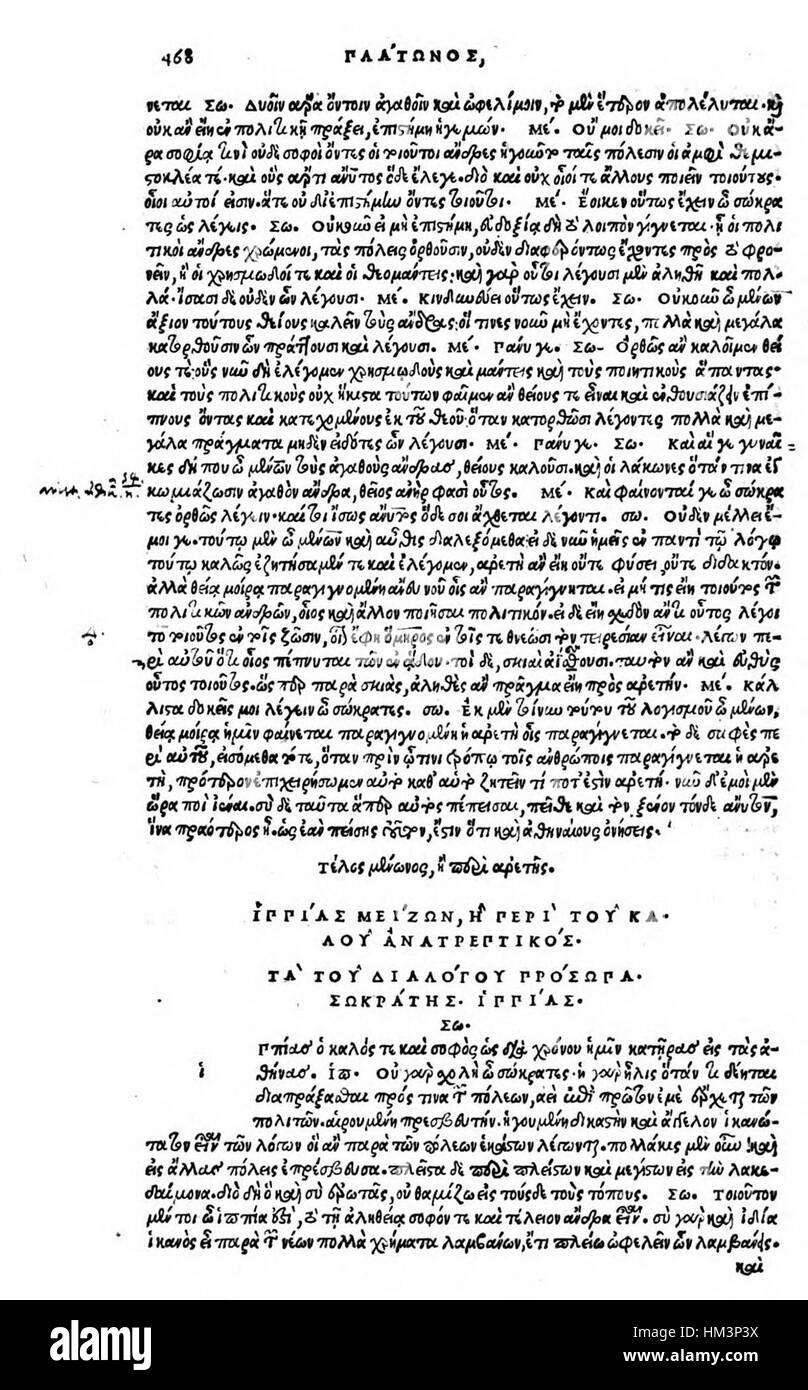 468 ΠΛΑ´ΤΩΝΟΣ,
νεται Σω· Δυοῖν ἄρα ὄντοιν ἀγαθοῖν καὶ ὠφελίμοιν, τὸ μὲν ἕτερον ἀπολέλυται· καὶ
οὐκ ἂν εἴη ἐν πολιτικῇ πράξει, ἐπιστήμη ἡγεμών· Μέ· Οὔ μοι δοκεῖ· Σω· Οὐκ ἄ-
ρα σοφίᾳ τινὶ οὐδὲ σοφοὶ ὄντες οἱ τοιοῦτοι ἄνδρες ἡγοῦντο ταῖς πόλεσιν οἱ ἀμφὶ θεμι-
στοκλέα τε· καὶ οὓς ἄρτι ἄνυτος ὅδε ἔλεγε· διὸ καὶ οὐχ οἷοί τε ἄλλους ποιεῖν τοιούτους·
οἷοι αὐτοί εἰσιν· ἅτε οὐ δι' ἐπιστήμην ὄντες τοιοῦτοι· Μέ· Ἔοικεν οὕτως ἔχειν ὦ σώκρα
τες ὡς λέγεις· Σω· Οὐκοῦν εἰ μὴ ἐπιστήμῃ, εὐδοξίᾳ δὴ τὸ λοιπὸν γίγνεται· ᾗ οἱ πολι
τικοὶ ἄνδρες χρώμενοι, τὰς πόλεις ὀρθοῦσιν, οὐδὲν διαφερόντως ἔχοντες πρὸς τὸ φρο-
νεῖν, ἢ οἱ χρησμωδοί τε καὶ οἱ θεομάντεις· καὶ γὰρ οὗτοι λέγουσι μὲν ἀληθῆ καὶ πολ-
λά· ἴσασι δὲ οὐδὲν ὧν λέγουσι· Μέ· Κινδυνεύει οὕτως ἔχειν· Σω· Οὐκοῦν ὦ μένων
ἄξιον τούτους θείους καλεῖν τοὺς ἄνδρας· οἵ τινες νοῦν μὴ ἔχοντες, πολλὰ καὶ μεγάλα
κατορθοῦσιν ὧν πράττουσι καὶ λέγουσι· Μέ· Πάνυ γε· Σω· Ὀρθῶς ἂν καλοῖμεν θεί
ους τε οὓς νῦν δὴ ἐλέγομεν χρησμωδοὺς καὶ μάντεις καὶ τοὺς ποιητικοὺς ἅπαντας·
καὶ τοὺς πολιτικοὺς οὐχ ἥκιστα τούτων φαῖμεν ἂν θείους τε εἶναι καὶ ἐνθουσιάζειν ἐπί-
πνους ὄντας καὶ κατεχομένους ἐκ τοῦ θεοῦ· ὅταν κατορθῶσι λέγοντες πολλὰ καὶ με-
γάλα πράγματα μηδὲν εἰδότες ὧν λέγουσι· Μέ· Πάνυ γε· Σω· Καὶ αἵ γε γυναῖ-
κες δή που ὦ μένων τοὺς ἀγαθοὺς ἄνδρας, θείους καλοῦσι· καὶ οἱ λάκωνες ὅταν τινὰ ἐγ
κωμιάζωσιν ἀγαθὸν ἄνδρα, θεῖος ἀνὴρ φασὶ οὗτος· Μέ· Καὶ φαίνονταί γε ὦ σώκρα
τες ὀρθῶς λέγειν· καί τοι ἴσως ἄνυτος ὅδε σοι ἄχθεται λέγοντι· σω· Οὐδὲν μέλλει ἔ-
μοι γε· τούτῳ μὲν ὦ μένων καὶ αὖθις διαλεξόμεθα· εἰ δὲ νῦν ἡμεῖς ἐν παντὶ τῷ λόγῳ
τούτῳ καλῶς ἐζητήσαμέν τε καὶ ἐλέγομεν, ἀρετὴ ἂν εἴη οὔτε φύσει οὔτε διδακτόν·
ἀλλὰ θείᾳ μοίρᾳ παραγιγνομένη ἄνευ νοῦ οἷς ἂν παραγίγνηται· εἰ μή τις εἴη τοιοῦτος τῶν
πολιτικῶν ἀνδρῶν, οἷος καὶ ἄλλον ποιῆσαι πολιτικόν· εἰ δὲ εἴη σχεδὸν ἄν τι οὗτος λέγοι
το τοιοῦτος ἐν τοῖς ζῶσιν, οἷον ἔφη ὅμηρος ἐν τοῖς τεθνεῶσι τὸν τειρεσίαν εἶναι· λέγων πε-
ρὶ αὐτοῦ ὅτι οἷος πέπνυται τῶν ἐν ᾅδου· τοὶ δὲ, σκιαὶ ἀΐσσουσι· ταυτὸν ἂν καὶ εὐθὺς
οὗτος τοιοῦτος· ὥσπερ παρὰ σκιὰς, ἀληθὲς ἂν πρᾶγμα εἴη πρὸς ἀρετήν· Μέ· Κάλ
λιστα δοκεῖς μοι λέγειν ὦ σώκρατες· σω· Ἐκ μὲν τοίνυν τούτου τοῦ λογισμοῦ ὦ μένων,
θείᾳ μοίρᾳ ἡμῖν φαίνεται παραγιγνομένη ἡ ἀρετὴ οἷς παραγίγνεται· τὸ δὲ σαφὲς πε
ρὶ αὐτοῦ, εἰσόμεθα τότε, ὅταν πρὶν ᾧτινι τρόπῳ τοῖς ἀνθρώποις παραγίγνεται ἡ ἀρε
τὴ, πρότερον ἐπιχειρήσωμεν αὐτὸ καθ' αὑτὸ ζητεῖν τί ποτ' ἔστιν ἀρετή· νῦν δ' ἐμοὶ μὲν
ὥρα ποι ἰέναι· σὺ δὲ ταῦτα ἅπερ αὐτὸς πέπεισαι, πεῖθε καὶ τὸν ξένον τόνδε ἄνυτον,
ἵνα πραότερος ᾖ· ὡς ἐὰν πείσῃς τοῦτον, ἔστιν ὅτι καὶ ἀθηναίους ὀνήσεις·
Τέλος μένωνος, ἢ περὶ ἀρετῆς·
ἹΠΠΙ´ΑΣ ΜΕΙ´ΖΩΝ, Η῍ ΠΕΡΙ` ΤΟΥ͂ ΚΑ·
ΛΟΥ͂ ἈΝΑΤΡΕΠΤΙΚΟ´Σ·
ΤΑ` ΤΟΥ͂ ΔΙΑΛΟ´ΓΟΥ ΠΡΟ´ΣΩΠΑ·
ΣΩΚΡΑ´ΤΗΣ· ἹΠΠΙ´ΑΣ·
Σω·
ἱ Ππίας ὁ καλός τε καὶ σοφὸς ὡς διὰ χρόνου ἡμῖν κατῆρας εἰς τὰς ἀ-
θήνας· Ἱπ· Οὐ γὰρ σχολὴ ὦ σώκρατες· ἡ γὰρ ἦλις ὅταν τι δέηται
διαπράξασθαι πρός τινα τῶν πόλεων, ἀεὶ ἐπὶ πρῶτον ἐμὲ ἔρχεται τῶν
πολιτῶν· αἱρουμένη πρεσβευτήν· ἡγουμένη δικαστὴν καὶ ἄγγελον ἱκανώ-
τατον εἶναι τῶν λόγων οἳ ἂν παρὰ τῶν πόλεων ἑκάστων λέγωνται· πολλάκις μὲν οὖν καὶ
εἰς ἄλλας πόλεις ἐπρέσβευσα· πλεῖστα δὲ περὶ πλείστων καὶ μεγίστων εἰς τὴν λακε-
δαίμονα· διὸ δὴ ὃ καὶ σὺ ἐρωτᾷς, οὐ θαμίζω εἰς τούσδε τοὺς τόπους· Σω· Τοιοῦτον
μέντοι ὦ ἱππία ἐστὶ, τὸ τῇ ἀληθείᾳ σοφόν τε καὶ τέλειον ἄνδρα εἶναι· σὺ γὰρ καὶ ἰδίᾳ
ἱκανὸς εἶ παρὰ τῶν νέων πολλὰ χρήματα λαμβάνων, ἔτι πλείω ὠφελεῖν ὧν λαμβάνεις·
καὶ
alamy
Image ID: HM3P3X
www.alamy.com